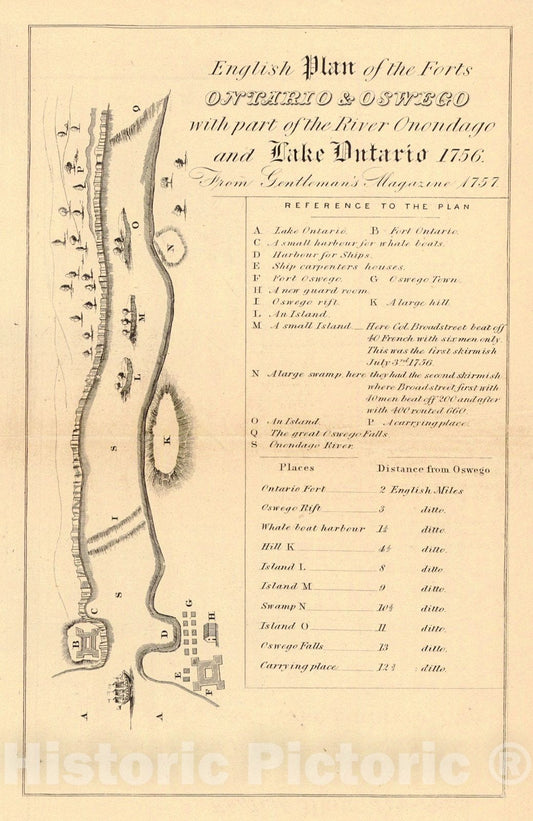 English Plan of the Forts
ONTARIO & OSWEGO
with part of the River Onondago
and Lake Ontario 1756.
From Gentleman's Magazine 1757.
REFERENCE TO THE PLAN
A Lake Ontario. B Fort Ontario.
C A small harbour for whale boats.
D Harbour for Ships.
E Ship carpenters houses.
F Fort Oswego. G Oswego Town.
H A new guard room.
I Oswego rift. K A large hill.
L An Island.
M A small Island Here Col. Broadstreet beat off
40 French with six men only.
This was the first skirmish
July 3rd 1756.
N A large swamp, here they had the second skirmish
where Broadstreet first with
40 men beat off 200 and after
with 400 routed 660.
O An Island. P A carrying place.
Q The great Oswego Falls
S Onondago River.
Places Distance from Oswego
Ontario Fort 2 English Miles
Oswego Rift 3 ditto.
Whale boat harbour 1½ ditto.
Hill K 4½ ditto.
Island L 8 ditto
Island M 9 ditto.
Swamp N 10½ ditto.
Island O 11 ditto.
Oswego Falls 13 ditto.
Carrying place 12½ ditto.
Q
P
O
N
M
L
K
S
I
S
C
B
D
G
H
E
F
A
A
Historic Pictoric ®